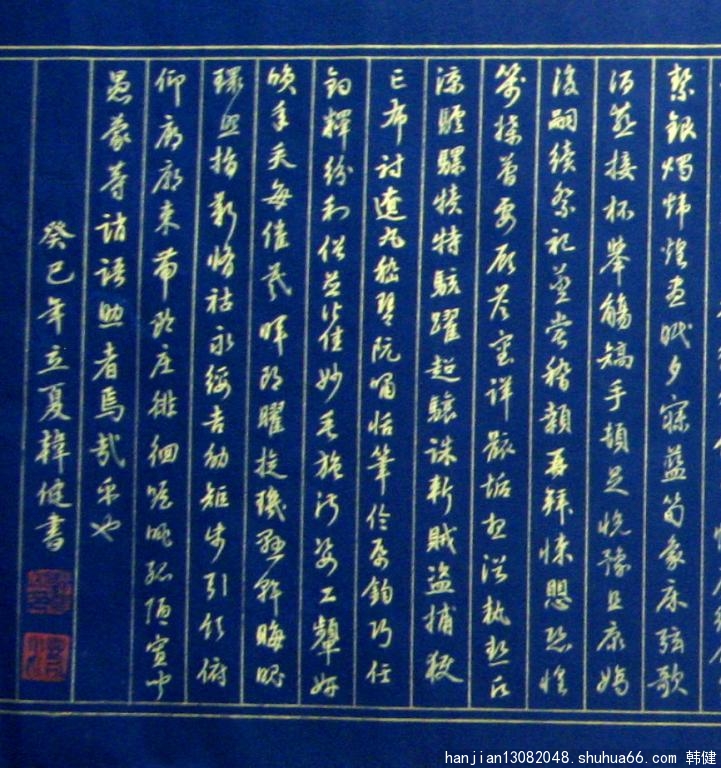 絜銀燭煒煌晝眠夕寐藍筍象床弦歌
酒宴接杯舉觴矯手頓足悅豫且康嫡
後嗣續祭祀蒸嘗稽顙再拜悚懼恐惶
箋牒簡要顧答審詳骸垢想浴執熱願
涼驢騾犢特駭躍超驤誅斬賊盜捕獲
亡布射遼丸嵇琴阮嘯恬筆倫紙鈞巧任
釣釋紛利俗並皆佳妙毛施淑姿工顰妍
笑年矢每催羲暉朗曜旋璣懸斡晦魄
環照指薪修祜永綏吉劭矩步引領俯
仰廊廟束帶矜莊徘徊瞻眺孤陋寡聞
愚蒙等誚語助者焉哉乎也
癸巳年立夏韓健書
hanjian13082048.shuhua66.com 韩健